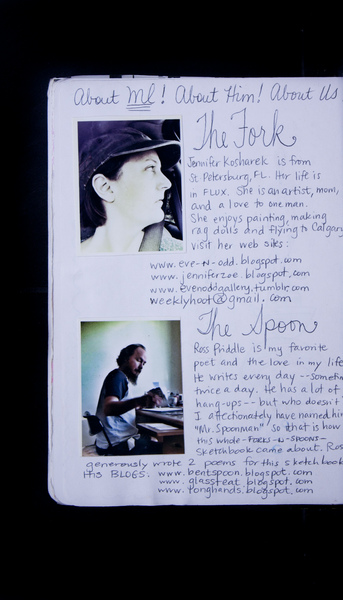 About Me! About Him! About Us
The Fork
Jennifer Kosharek is from
St. Petersburg, FL. Her life is
in FLUX. She is an artist, mom,
and a love to one man.
She enjoys painting, making
rag dolls and flying to Calgary
visit her web sites:
www.eve-N-odd.blogspot.com
www.jenniferzoe.blogspot.com
www.evenoddgallery.tumblr.com
weeklyhoot@gmail.com
The Spoon
Ross Priddle is my favorite
poet and the love in my life
He writes every day -- sometim
twice a day. He has a lot of
hang-ups -- but who doesn't
I affectionately have named him
"Mr. Spoonman" so that is how
this whole -FORKS-N-SPOONS-
Sketchbook came about. Ros
generously wrote 2 poems for this sketchbook
His BLOGS. www.bentspoon.blogspot.com
www.glasseat.blogspot.com
www.longhands.blogspot.com